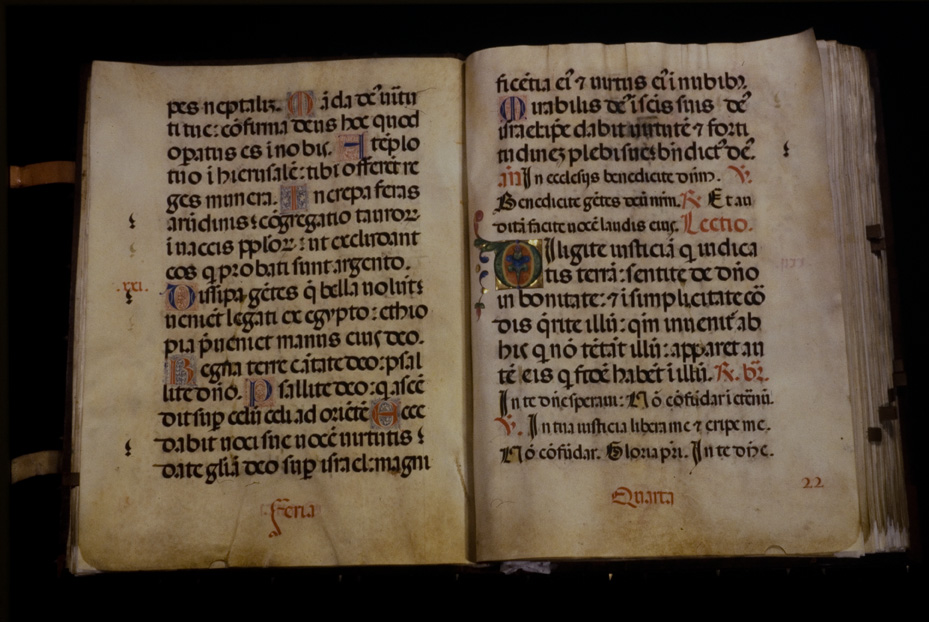 pes neptali₃. Manda dẽ uirtu
ti tue: cõfirma deus hoc quod
opatus es i nobis. A tẽplo
tuo i hierusalẽ: tibi offerẽt re
ges munera. Increpa feras
arũdinis: cõgregatio tauroꝝ
i uaccis pploꝝ: ut excludant
eos q probati sunt argento.
.xxi. Dissipa gẽtes q̃ bella uolũt:
uenient legati ex egypto: ethio
pia p̃ueniet manus eius deo.
Regna terre cãtate deo: psal
lite dño. Psallite deo: q ascẽ
dit sup celũ celi ad oriẽtẽ Ecce
dabit uoci sue uocẽ uirtutis:
date gliã deo sup israel: magni
feria
ficẽtia ei᾽ ⁊ uirtus ei᾽ i nubib₃.
Mirabilis de᾽ i scis suis de᾽
israel ipe dabit uirtutẽ ⁊ forti
tudinez plebi sue: bñdict᾽ de᾽.
añ In ecclesijs benedicite dñm. V.
Benedicite gẽtes deũ nrm. R. Et au
dita facite uocẽ laudis eius. Lectio.
Diligite iusticiã q iudica
tis terrã: sentite de dño
in bonitate: ⁊ i simplicitate cõ
dis q̃rite illũ: qm inuenit᾽ ab
his q nõ tẽtãt illũ: apparet au
tẽ eis q fidẽ habẽt i illũ. R. br̃.
In te dñe speraui: Nõ cõfũdar i eternũ.
V. In tua iusticia libera me ⁊ eripe me.
Nõ cõfũdar. Gloria pri. In te dñe.
22
Quarta